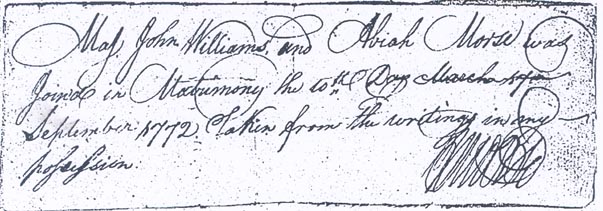 Maj. John Williams, and Abiah Morse was
Joined in Matrimony the 10th Day March 177
September 1772 Taken from the writings in my
possession.